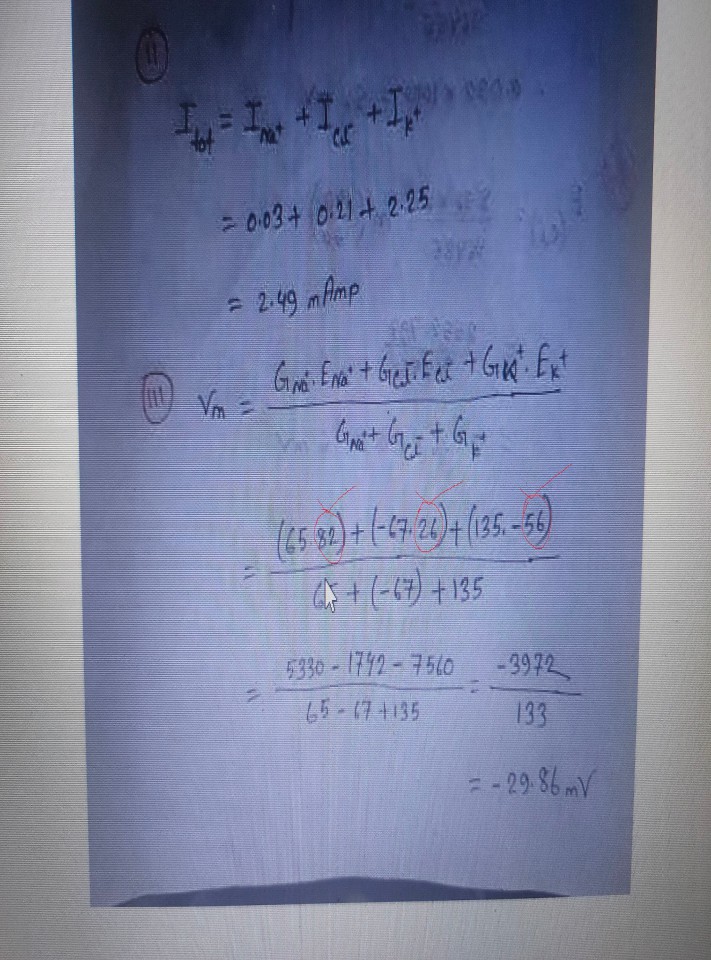 II
I_tot = I_Na⁺ + I_Cl⁻ + I_K⁺
= 0.03 + 0.21 + 2.25
= 2.49 mAmp
III Vm = (G_Na⁺. E_Na⁺ + G_Cl⁻. E_Cl⁻ + G_K⁺. E_K⁺) / (G_Na⁺ + G_Cl⁻ + G_K⁺)
= ((65.82) + (-67.26) + (135.-56)) / (65 + (-67) + 135)
= (5330 - 1742 - 7560) / (65 - 67 + 135) = -3972 / 133
= -29.86 mV